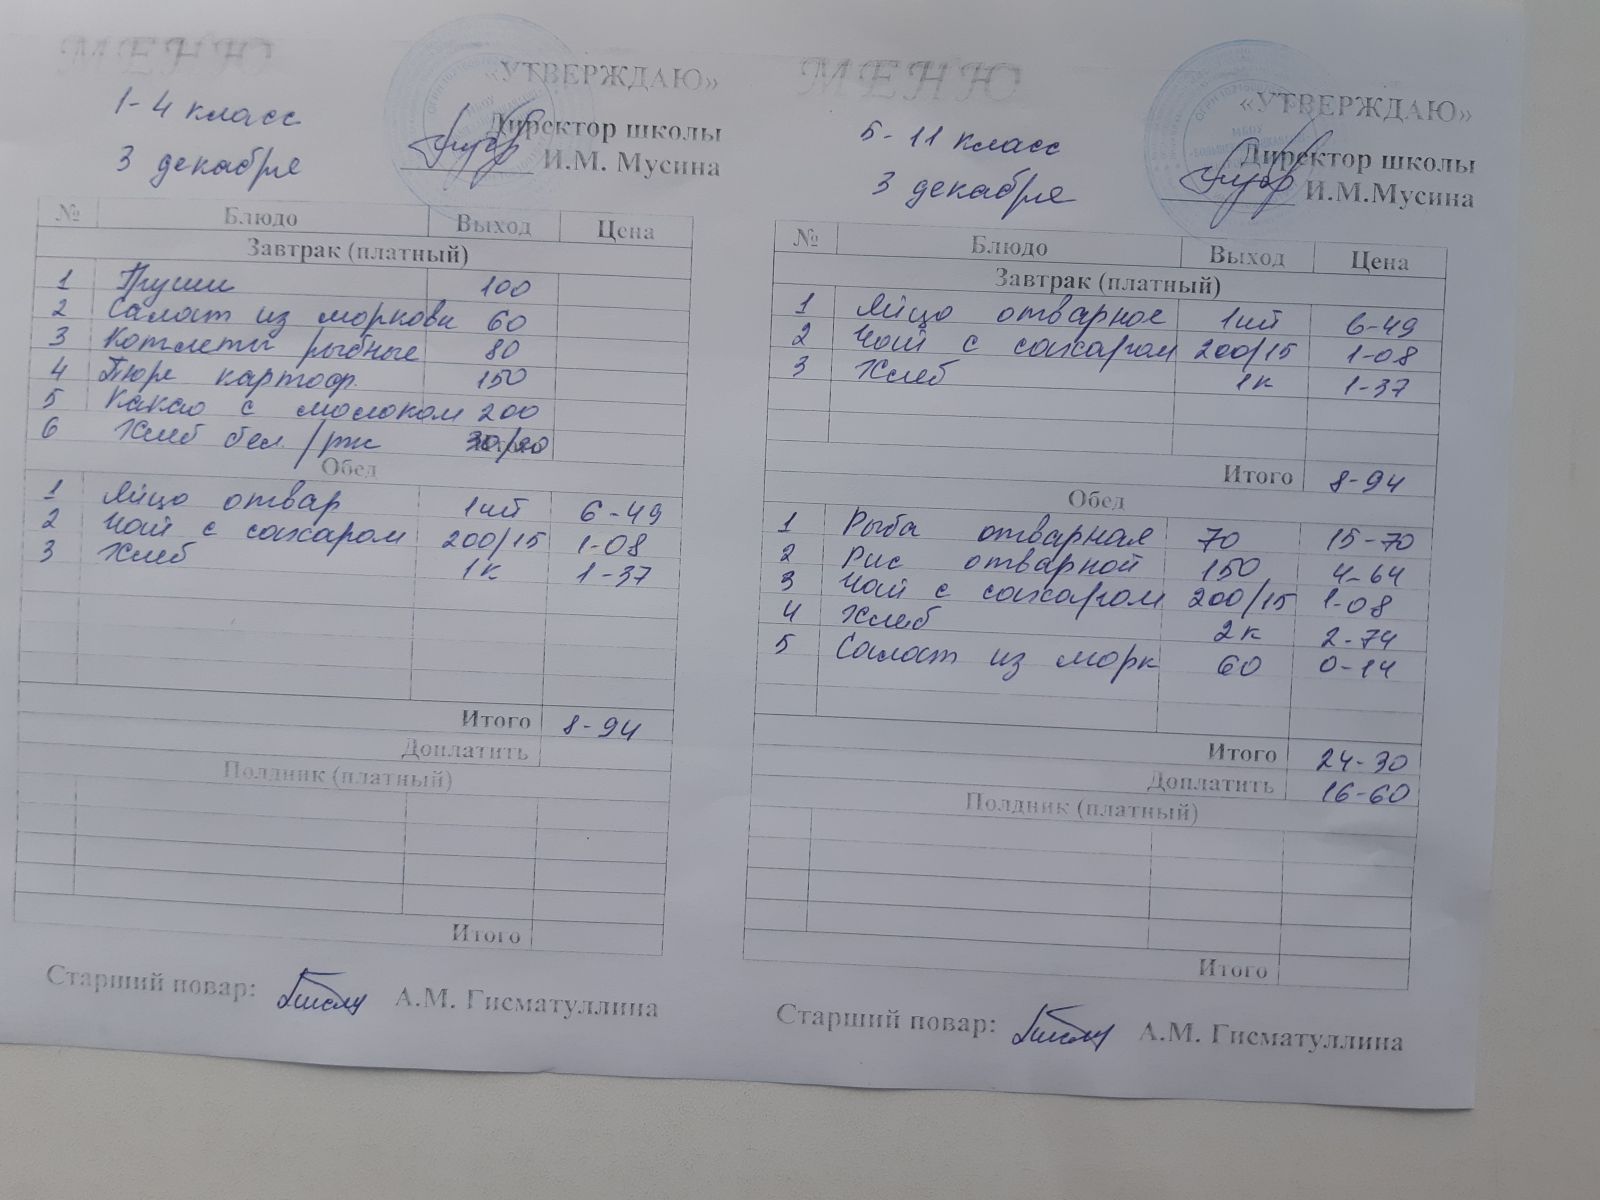 МЕНЮ
«УТВЕРЖДАЮ»
1-4 класс
Директор школы
3 декабря
И.М. Мусина
№ Блюдо Выход Цена
Завтрак (платный)
1 Груши 100
2 Салат из моркови 60
3 Котлеты рыбные 80
4 Пюре картоф. 150
5 Какао с молоком 200
6 Хлеб бел/рж 30/20
Обед
1 Яйцо отвар 1шт 6-49
2 Чай с сахаром 200/15 1-08
3 Хлеб 1к 1-37
Итого 8-94
Доплатить
Полдник (платный)
Итого
Старший повар: А.М. Гисматуллина
МЕНЮ
«УТВЕРЖДАЮ»
5-11 класс
Директор школы
3 декабря
И.М.Мусина
№ Блюдо Выход Цена
Завтрак (платный)
1 Яйцо отварное 1шт 6-49
2 Чай с сахаром 200/15 1-08
3 Хлеб 1к 1-37
Итого 8-94
Обед
1 Рыба отварная 70 15-70
2 Рис отварной 150 4-64
3 Чай с сахаром 200/15 1-08
4 Хлеб 2к 2-74
5 Салат из морк 60 0-14
Итого 24-30
Доплатить 16-60
Полдник (платный)
Итого
Старший повар: А.М. Гисматуллина